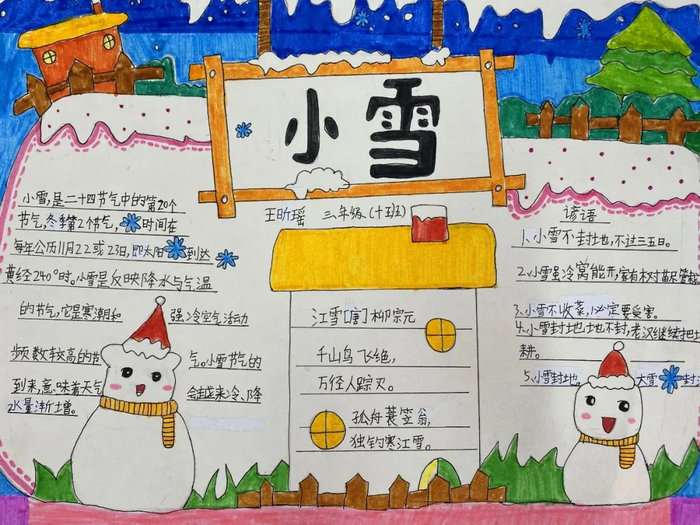 小雪
王昕瑶 三年级(十五班)
小雪,是二十四节气中的第20个
节气,冬季第2个节气,时间在
每年公历11月22或23日,即太阳到达
黄经240°时。小雪是反映降水与气温
的节气,它是寒潮和强冷空气活动
频数较高的节气。小雪节气的
到来,意味着天气会越来冷、降
水量渐增。
江雪[唐]柳宗元
千山鸟飞绝,
万径人踪灭。
孤舟蓑笠翁,
独钓寒江雪。
谚语
1、小雪不封地,不过三五日。
2、小雪虽冷窝能开,家有树苗尽管
3、小雪不收菜,必定要受害。
4、小雪封地地不封,老汉继续把地
耕。
5、小雪封地,大雪封